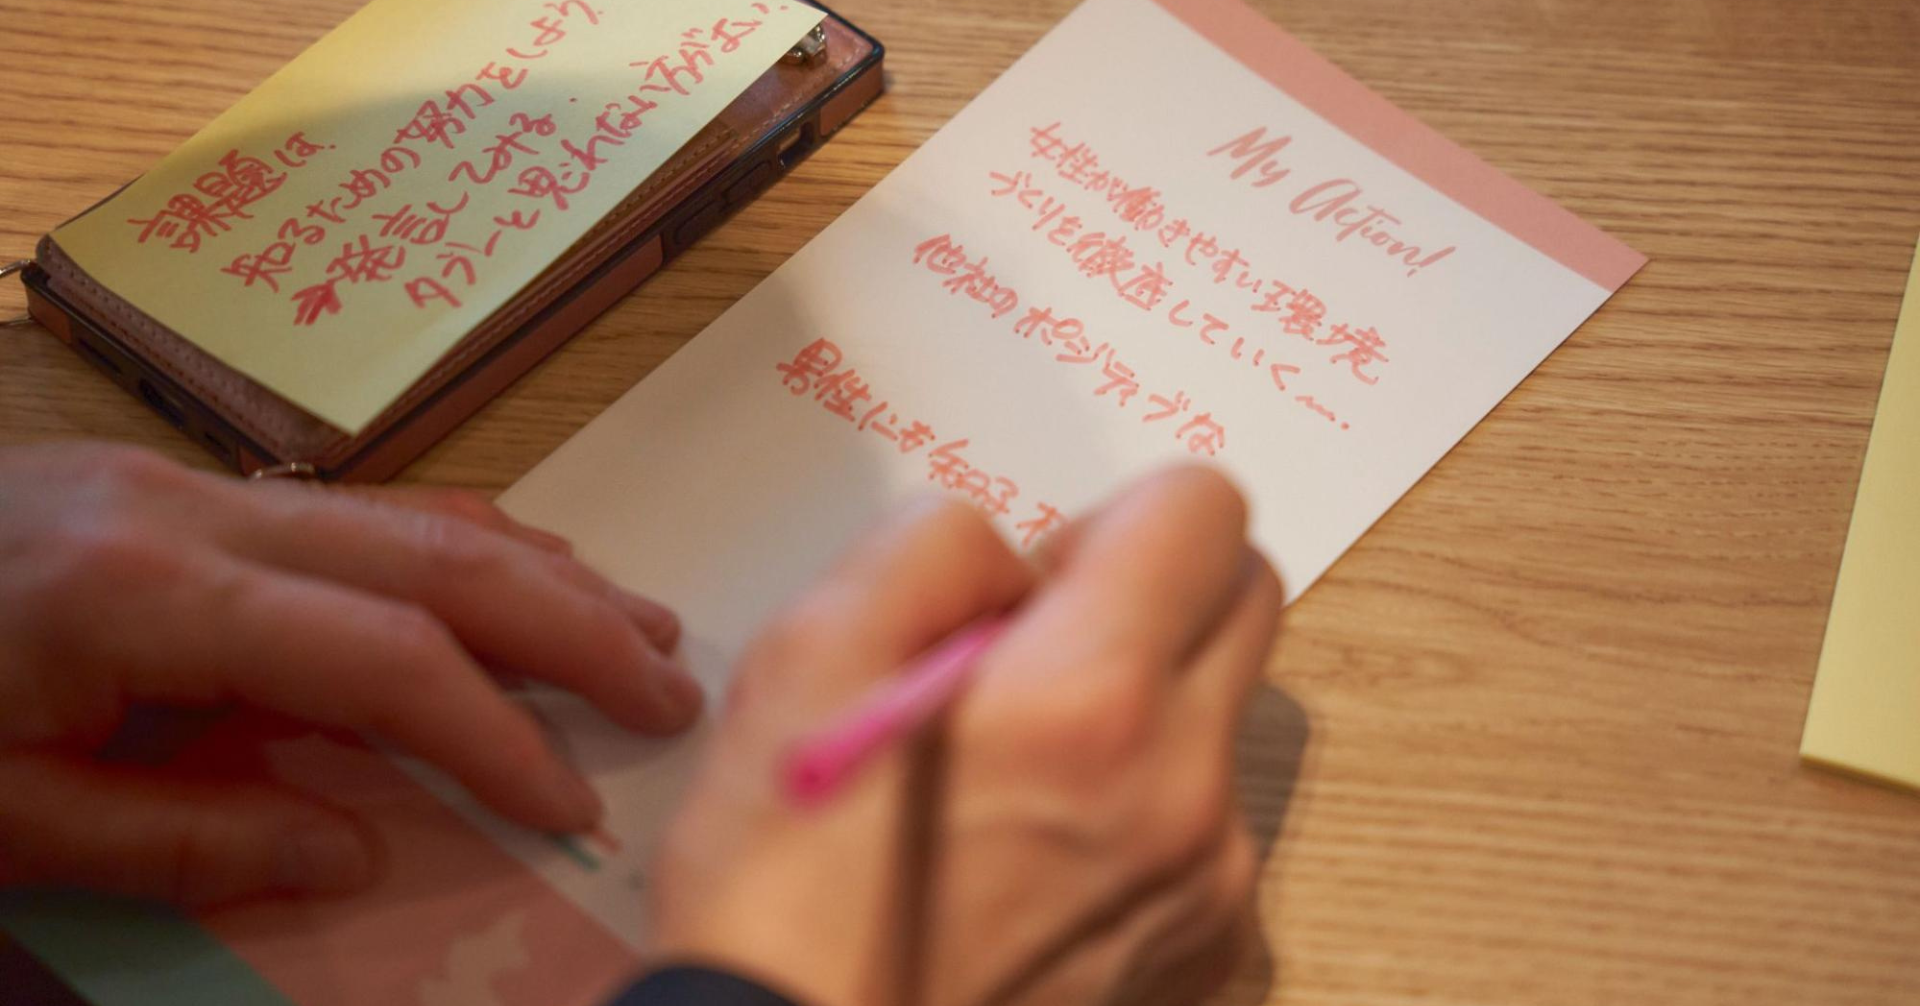 課題は、
知るための努力をしよう.
→発言してみる.
タブーと思われない方がよい.
My Action!
女性が働きやすい環境
づくりを徹底していく〜.
他社のポジティブな
男性にも